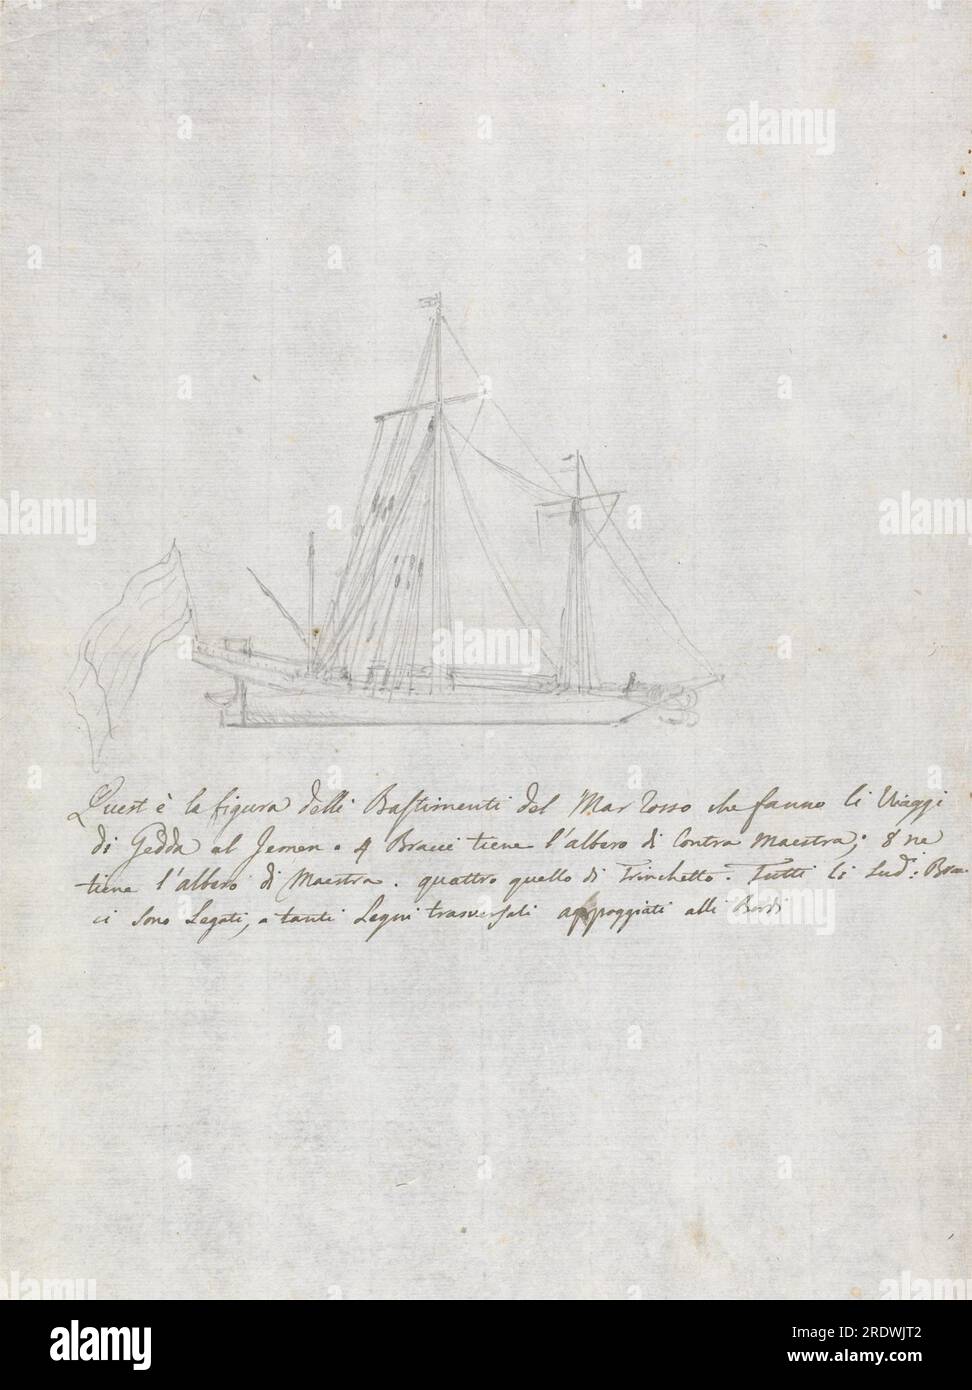 Quest è la figura delli Bastimenti del Mar Rosso che fanno li Viaggi
di Gedda al Jemen. 4 Bracci tiene l'albero di Contra Maestra; 8 ne
tiene l'albero di Maestra. quattro quello di Trinchetto. Tutti li Sud: Brac
ci sono Legati, a tanti Legni trasversali appoggiati alli Bordi
alamy
Image ID: 2RDWJT2
www.alamy.com